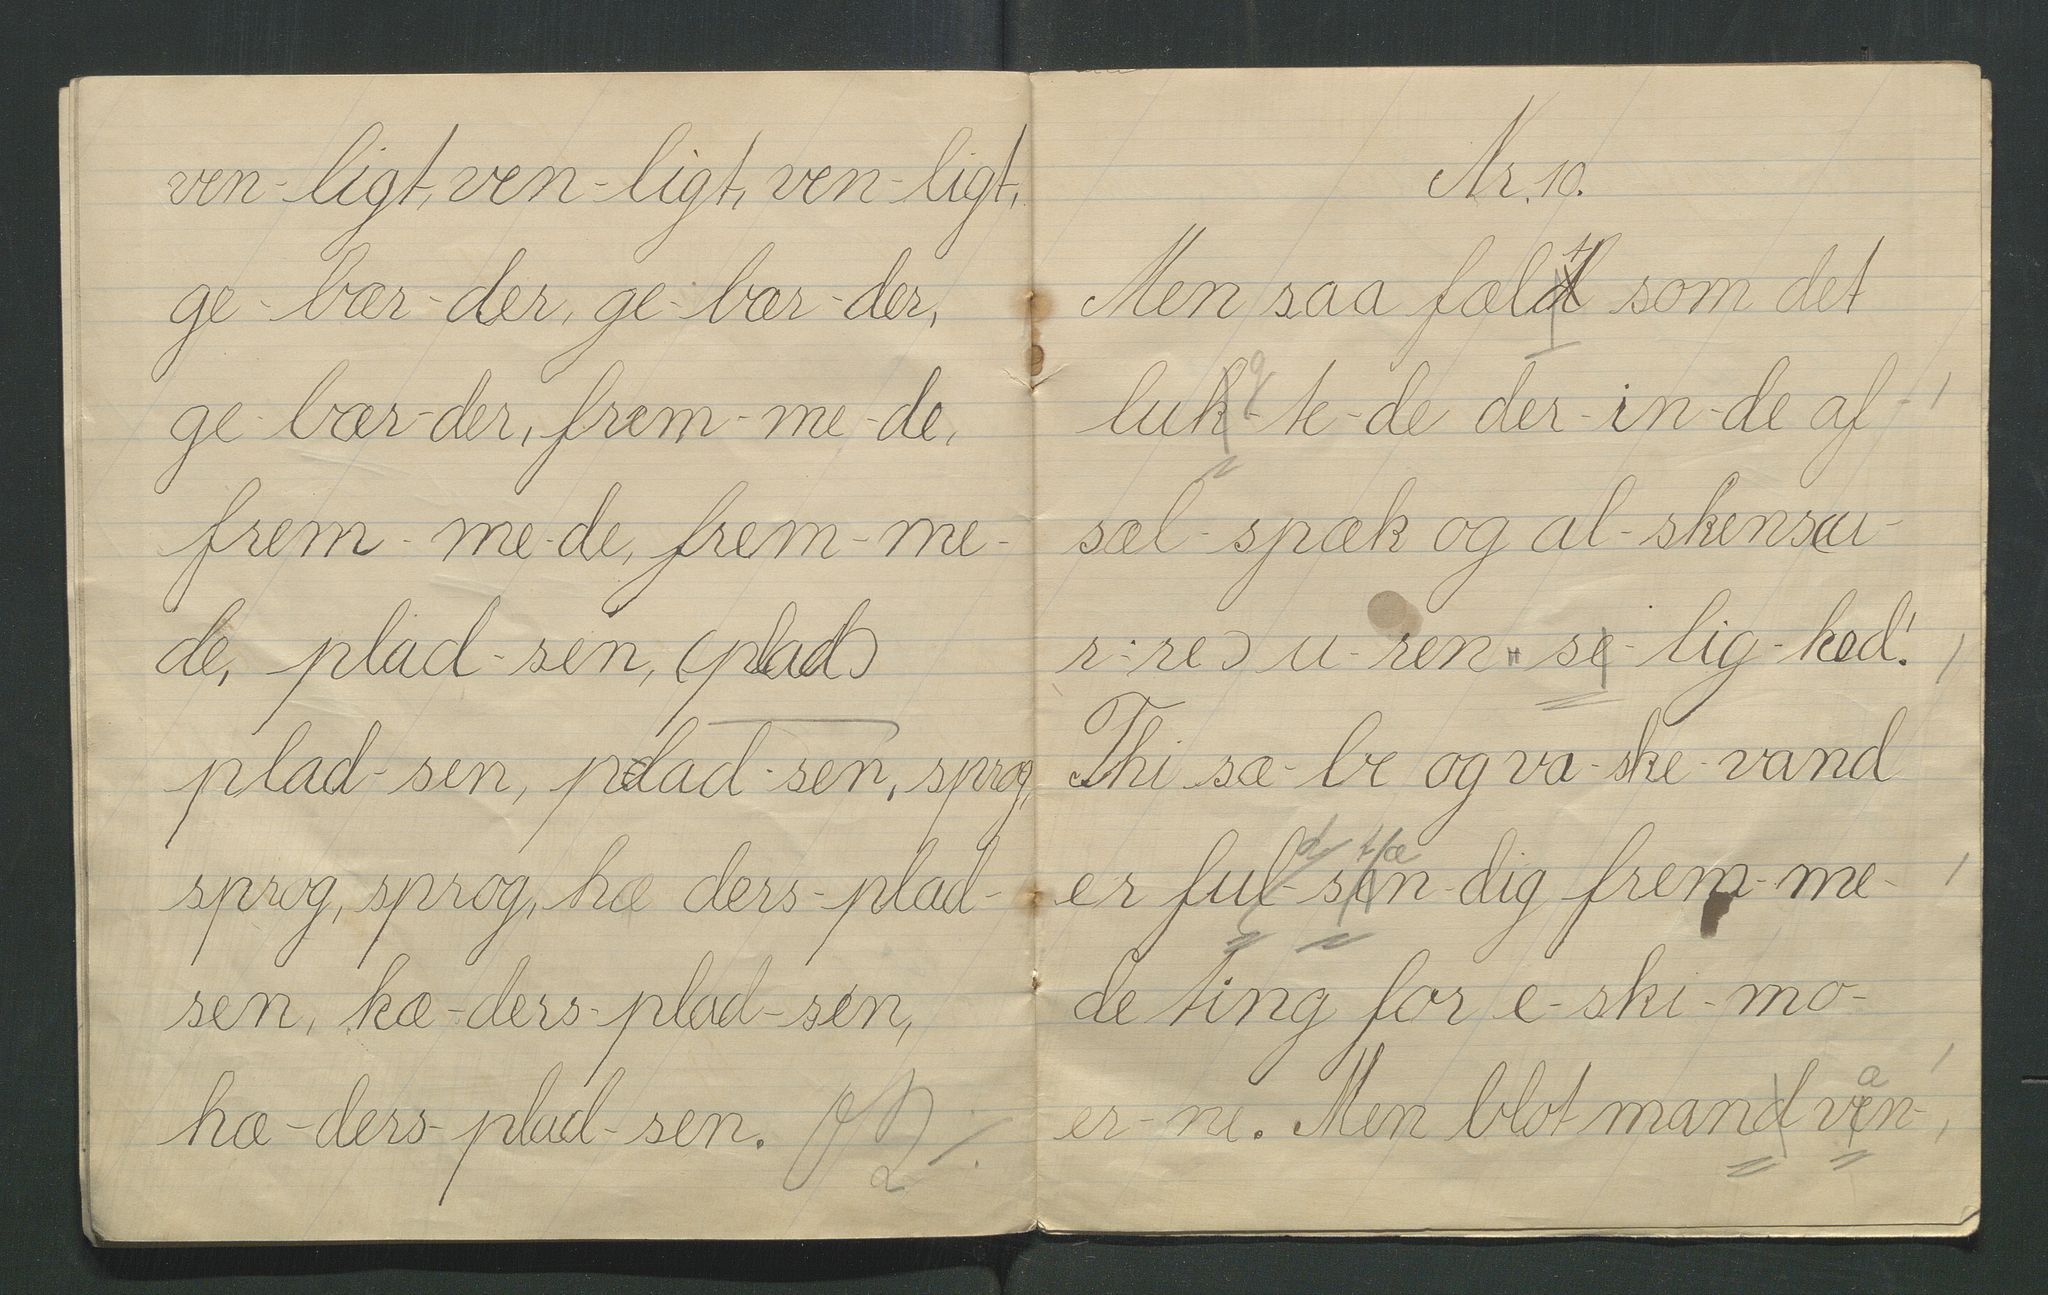 ven-ligt, ven-ligt, ven-ligt,
ge-bær-der, ge-bær-der,
ge-bær-der, frem-me-de,
frem-me-de, frem-me-
de, plad-sen, (plad)
plad-sen, plad-sen, sprog,
sprog, sprog, hæ ders-plad-
sen, hæ-ders-plad-sen,
hæ-ders-plad-sen.
Nr. 10.
Men saa fæld som det
luk-te-de der-in-de af
sæl-spæk og al-skens(u-
r-re) u-ren-se-lig-hed!
Thi sæ-be og va-ske-vand
er ful-sen-dig frem-me-
de ting for e-ski-mo-
er-ne. Men blot mand ven-